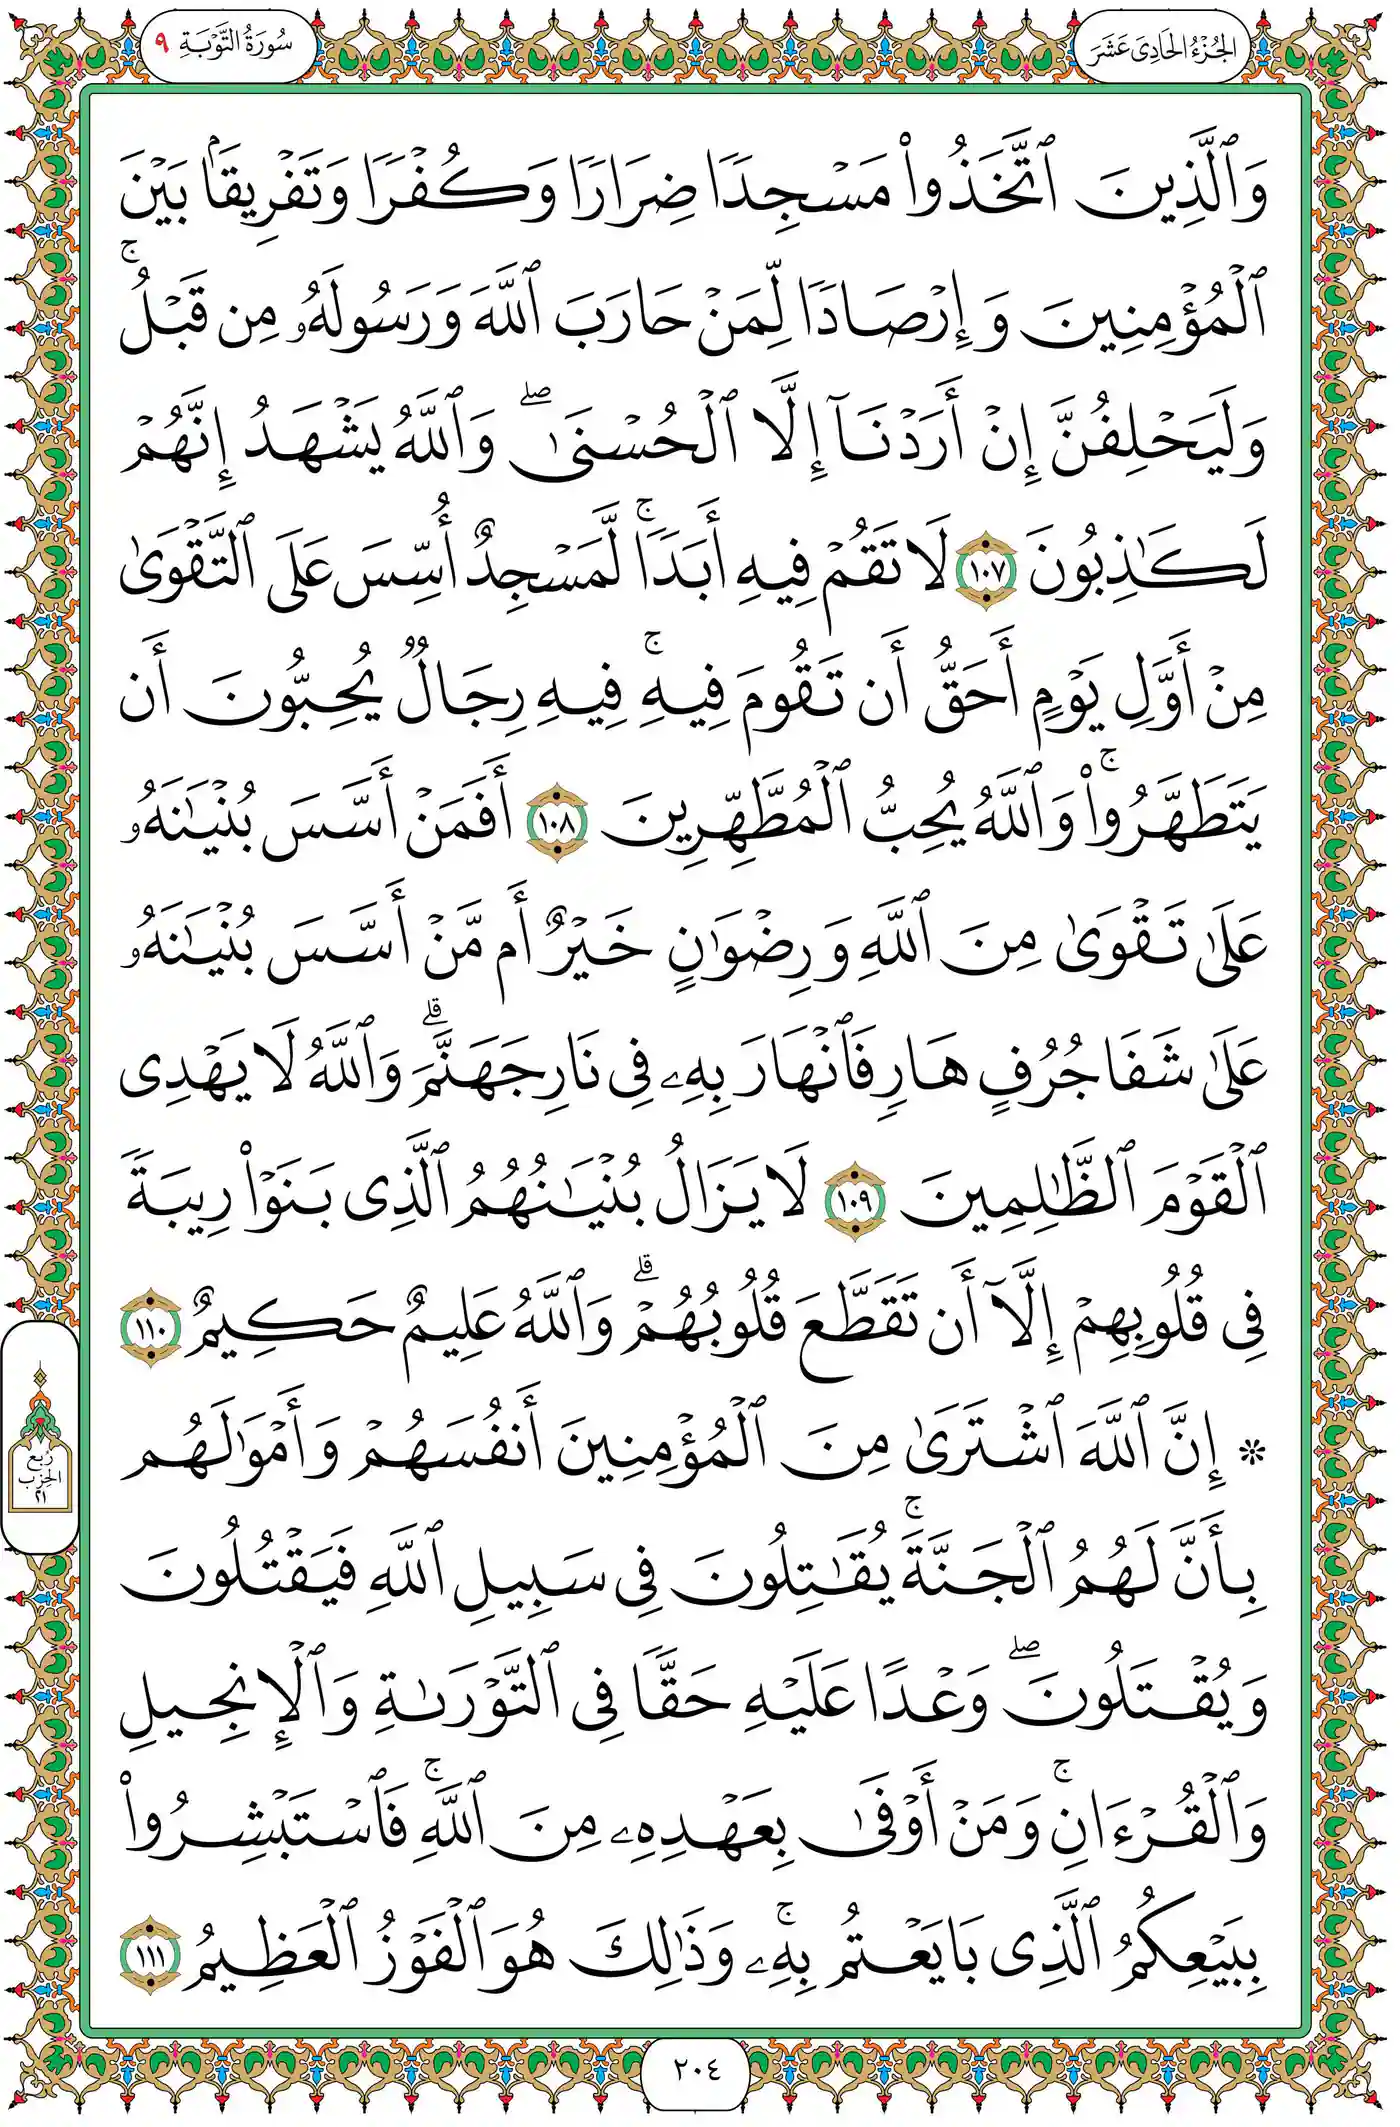 الجُزْءُ الحَادِىَ عَشَرَ
سُورَةُ التَّوۡبَةِ ٩
وَٱلَّذِينَ ٱتَّخَذُواْ مَسۡجِدٗا ضِرَارٗا وَكُفۡرٗا وَتَفۡرِيقَۢا بَيۡنَ
ٱلۡمُؤۡمِنِينَ وَإِرۡصَادٗا لِّمَنۡ حَارَبَ ٱللَّهَ وَرَسُولَهُۥ مِن قَبۡلُۚ
وَلَيَحۡلِفُنَّ إِنۡ أَرَدۡنَآ إِلَّا ٱلۡحُسۡنَىٰۖ وَٱللَّهُ يَشۡهَدُ إِنَّهُمۡ
لَكَٰذِبُونَ ١٠٧ لَا تَقُمۡ فِيهِ أَبَدٗاۚ لَّمَسۡجِدٌ أُسِّسَ عَلَى ٱلتَّقۡوَىٰ
مِنۡ أَوَّلِ يَوۡمٍ أَحَقُّ أَن تَقُومَ فِيهِۚ فِيهِ رِجَالٞ يُحِبُّونَ أَن
يَتَطَهَّرُواْۚ وَٱللَّهُ يُحِبُّ ٱلۡمُطَّهِّرِينَ ١٠٨ أَفَمَنۡ أَسَّسَ بُنۡيَٰنَهُۥ
عَلَىٰ تَقۡوَىٰ مِنَ ٱللَّهِ وَرِضۡوَٰنٍ خَيۡرٌ أَم مَّنۡ أَسَّسَ بُنۡيَٰنَهُۥ
عَلَىٰ شَفَا جُرُفٍ هَارٖ فَٱنۡهَارَ بِهِۦ فِي نَارِ جَهَنَّمَۗ وَٱللَّهُ لَا يَهۡدِي
ٱلۡقَوۡمَ ٱلظَّٰلِمِينَ ١٠٩ لَا يَزَالُ بُنۡيَٰنُهُمُ ٱلَّذِي بَنَوۡاْ رِيبَةٗ
فِي قُلُوبِهِمۡ إِلَّآ أَن تَقَطَّعَ قُلُوبُهُمۡۗ وَٱللَّهُ عَلِيمٌ حَكِيمٌ ١١٠
۞ إِنَّ ٱللَّهَ ٱشۡتَرَىٰ مِنَ ٱلۡمُؤۡمِنِينَ أَنفُسَهُمۡ وَأَمۡوَٰلَهُم
بِأَنَّ لَهُمُ ٱلۡجَنَّةَۚ يُقَٰتِلُونَ فِي سَبِيلِ ٱللَّهِ فَيَقۡتُلُونَ
وَيُقۡتَلُونَۖ وَعۡدًا عَلَيۡهِ حَقّٗا فِي ٱلتَّوۡرَىٰةِ وَٱلۡإِنجِيلِ
وَٱلۡقُرۡءَانِۚ وَمَنۡ أَوۡفَىٰ بِعَهۡدِهِۦ مِنَ ٱللَّهِۚ فَٱسۡتَبۡشِرُواْ
بِبَيۡعِكُمُ ٱلَّذِي بَايَعۡتُم بِهِۦۚ وَذَٰلِكَ هُوَ ٱلۡفَوۡزُ ٱلۡعَظِيمُ ١١١
رُبع
الحِزب
٢١
٢٠٤